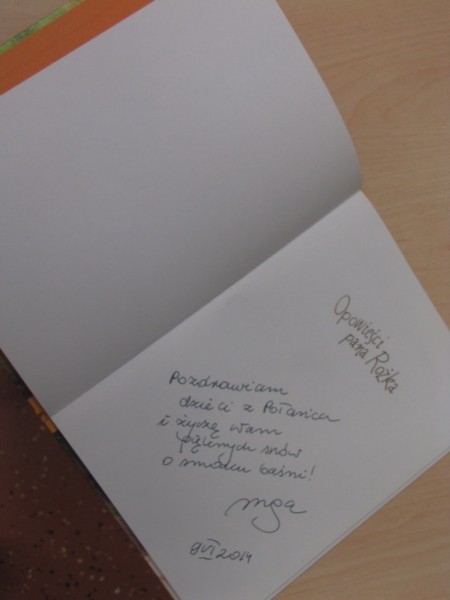 Opowieści
pana Rożka
Pozdrawiam
dzieci z Połańca
i życzę Wam
pięknych snów
o smaku baśni!
9 VI 2014